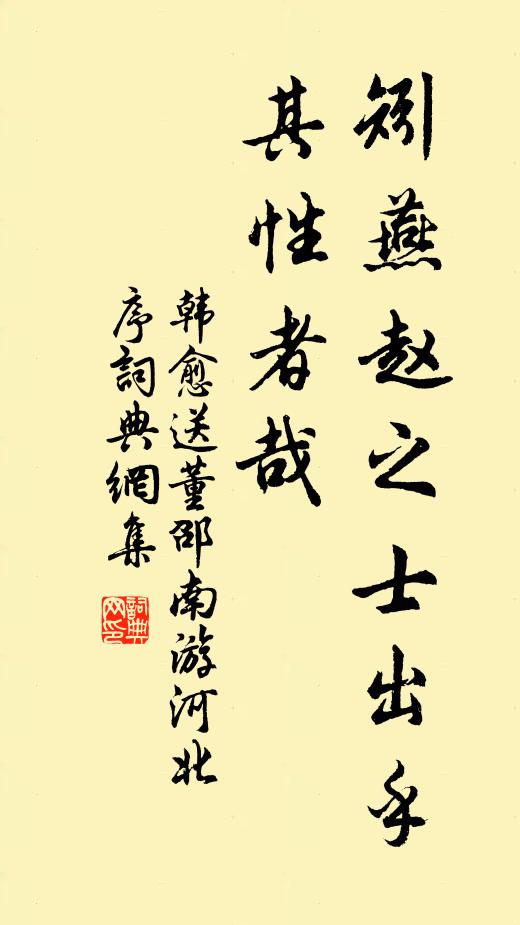 矧燕赵之士出乎
其性者哉
韩愈送董邵南游河北
序詞典網集
詞典网印